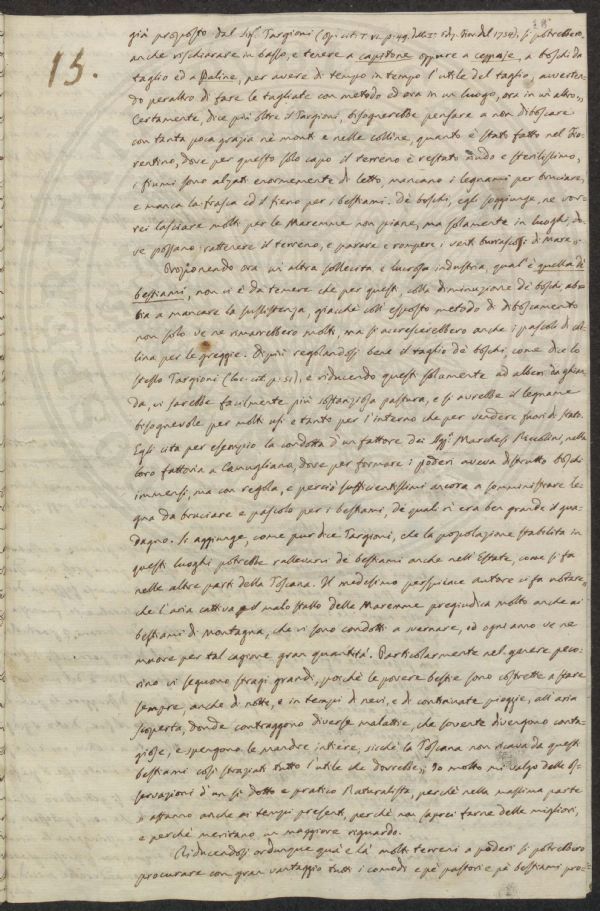 18
15.
già proposto dal Sigr. Targioni (Op. cit. T. VI. p. 49. della Iª. Ediz. Fior. del 1754), si potrebbero
anche rischiarare in basso, e tenere a capitone oppure a ceppaje, a boschi da
taglio ed a Paline, per avere di tempo in tempo l'utile del taglio, avverten=
do peraltro di fare le tagliate con metodo ed ora in un luogo, ora in un altro,,
Certamente, dice più oltre il Targioni, bisognerebbe pensare a non diboscare
con tanta poca grazia ne' monti e nelle colline, quanto è stato fatto nel Fio=
rentino, dove per questo solo capo il terreno è restato nudo e sterilissimo,
i fiumi sono alzati enormemente di letto, mancano i legnami per bruciare,
e manca la frasca ed il fieno per i bestiami. De' boschi, egli soggiunge, ne vor=
rei lasciare molti per le Maremme non piane, ma solamente in luoghi, do=
ve possano rattenere il terreno, e parare e rompere i venti burrascosi di Mare,,
Proponendo ora un'altra sollecita, e lucrosa industria, qual'è quella di
bestiami, non vi è da temere che per questi, colla diminuzione de' boschi ab=
bia a mancare la sussistenza, giacchè coll'esposto metodo di diboscamento
non solo ve ne rimarrebbero molti, ma si accrescerebbero anche i pascoli di col=
lina per le greggie. Di più regolandosi bene il taglio de' boschi, come dice lo
stesso Targioni (loc. cit. p. 51), e riducendo questi solamente ad alberi da ghian=
da, vi sarebbe facilmente più sostanziosa pastura, e si avrebbe il legname
bisognevole per molti usi e tanto per l'interno che per vendere fuori di stato.
Egli cita per esempio la condotta d'un fattore dei Sigg.ri Marchesi Niccolini, nella
loro fattoria a Camugliano, dove per formare i poderi aveva distrutto boschi
immensi, ma con regola, e perciò sufficientissimi ancora a somministrare le=
gna da bruciare e pascolo per i bestiami, de' quali vi era ben grande il gua=
dagno. Si aggiunge, come pur dice Targioni, che la popolazione stabilita in
questi luoghi potrebbe rallevarvi de' bestiami anche nell'Estate, come si fa
nelle altre parti della Toscana. Il medesimo perspicace autore ci fa notare,
che l'aria cattiva ed il malo stallo delle Maremme pregiudica molto anche ai
bestiami di Montagna, che vi sono condotti a svernare, ed ogni anno ve ne
muore per tal cagione gran quantità. Particolarmente nel genere peco=
rino vi seguono stragi grandi, poichè le povere bestie sono costrette a stare
sempre, anche di notte, e in tempi di nevi, e di continuate pioggie, all'aria
scoperta, donde contraggono diverse malattie, che sovente divengono conta=
giose, e spengono le mandre intiere, sicchè la Toscana non ricava da questi
bestiami così straziati tutto l'utile che dovrebbe,, Io molto mi valgo delle os=
servazioni d'un sì dotto e pratico Naturalista, perchè nella massima parte
si attanno anche ai tempi presenti, perchè non saprei farne delle migliori,
e perchè meritano un maggiore riguardo.
Riducendosi ordunque quà e là molti terreni a poderi si potrebbero
procurare con gran vantaggio tutti i comodi e pe' pastori e pe' bestiami pro=